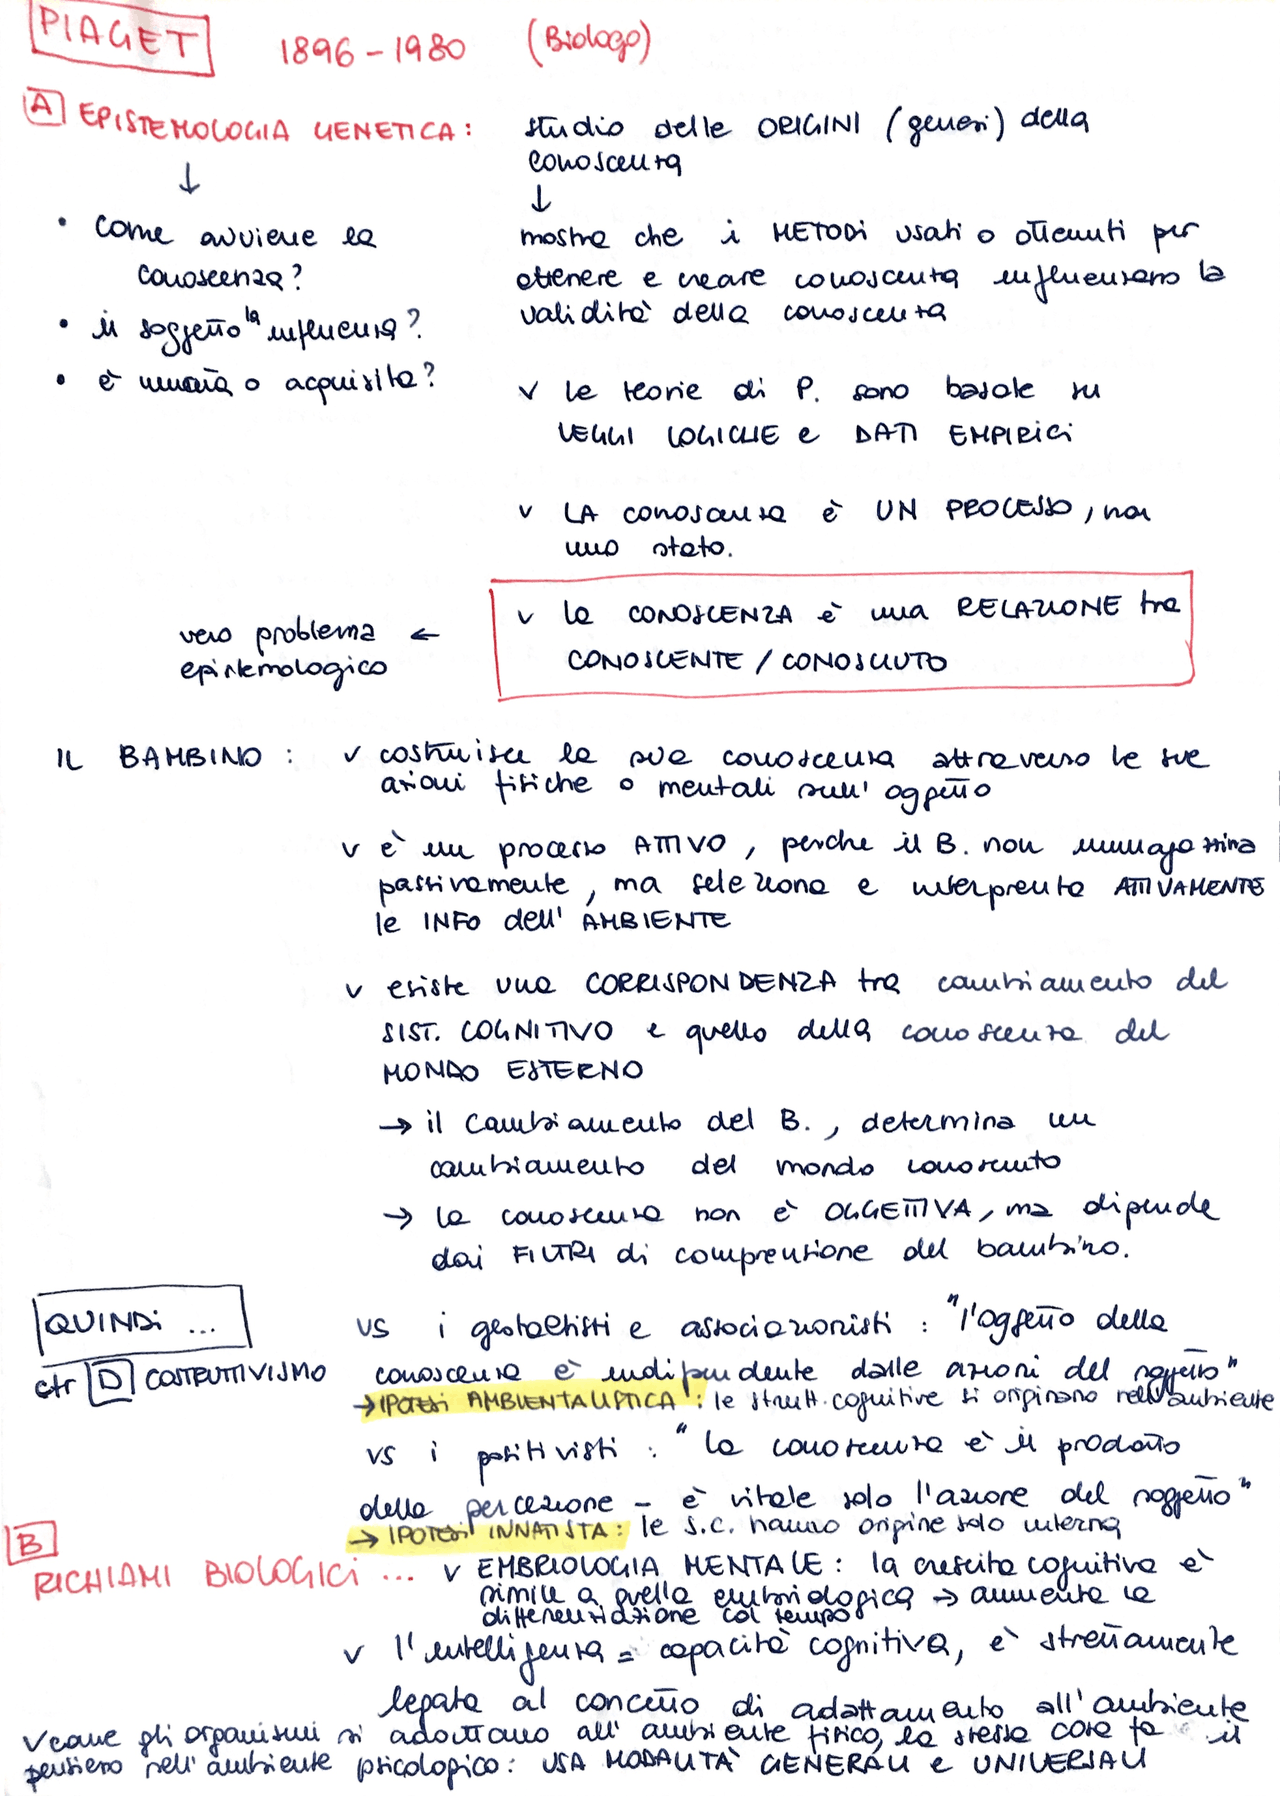 PIAGET 1896 - 1980 (Biologo)
A EPISTEMOLOGIA GENETICA: studio delle ORIGINI (genesi) della
conoscenza
↓ ↓
• come avviene la
conoscenza?
• il soggetto la influenza?
• è innata o acquisita?
mostra che i METODI usati o ottenuti per
ottenere e creare conoscenza influenzano la
validità della conoscenza
v le teorie di P. sono basate su
LEGGI LOGICHE e DATI EMPIRICI
v LA conoscenza è UN PROCESSO, non
uno stato.
v la CONOSCENZA è una RELAZIONE tra
CONOSCENTE / CONOSCIUTO
vero problema ←
epistemologico
IL BAMBINO: v costruisce la sua conoscenza attraverso le sue
azioni fisiche o mentali sull'oggetto
v è un processo ATTIVO, perche il B. non immagazzina
passivamente, ma seleziona e interpreta ATTIVAMENTE
le INFO dell'AMBIENTE
v esiste una CORRISPONDENZA tra cambiamento del
SIST. COGNITIVO e quello della conoscenza del
MONDO ESTERNO
→ il cambiamento del B., determina un
cambiamento del mondo conosciuto
→ la conoscenza non è OGGETTIVA, ma dipende
dai FILTRI di comprensione del bambino.
QUINDI ...
ctr D COSTRUTTIVISMO
vs i gestaltisti e associazionisti: "l'oggetto della
conoscenza è indipendente dalle azioni del soggetto"
→ IPOTESI AMBIENTALISTICA: le strutt. cognitive si originano nell'ambiente
vs i positivisti: "la conoscenza è il prodotto
della percezione - è vitale solo l'azione del soggetto"
→ IPOTESI INNATISTA: le s.c. hanno origine solo interna
B
RICHIAMI BIOLOGICI ... v EMBRIOLOGIA MENTALE: la crescita cognitiva è
simile a quella embriologica → aumenta la
differenziazione col tempo
v l'intelligenza = capacità cognitiva, è strettamente
legata al concetto di adattamento all'ambiente
v come gli organismi si adattano all'ambiente fisico, la stessa cosa fa il
pensiero nell'ambiente psicologico: USA MODALITÀ GENERALI e UNIVERSALI